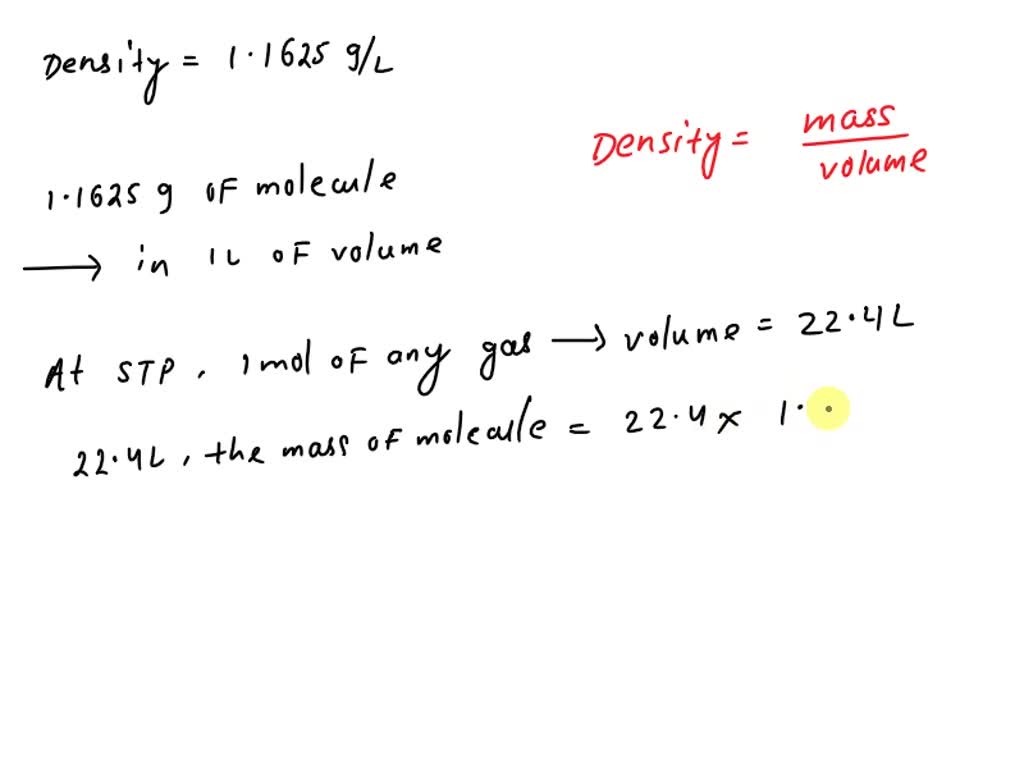 Density = 1.1625 g/L
Density = mass / volume
1.1625 g of molecule
→ in 1L of volume
At STP, 1 mol of any gas → volume = 22.4L
22.4L, the mass of molecule = 22.4 × 1.